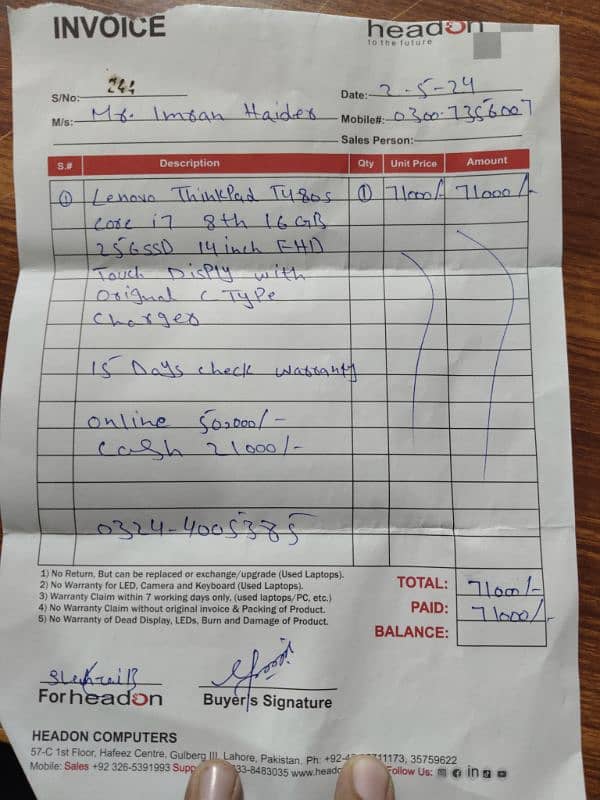 INVOICE
headon
to the future
S/No: 244
Date: 2-5-24
M/s: Mr. Imran Haider
Mobile#: 0300-7356007
Sales Person:
S.# Description Qty Unit Price Amount
① Lenovo ThinkPad T480s ① 71000/- 71000/-
Core i7 8th 16GB
256SSD 14 inch FHD
Touch Disply with
Original C Type
Charger
15 Days check warranty
online 50,000/-
Cash 21000/-
0324-4005385
1) No Return, But can be replaced or exchange/upgrade (Used Laptops).
2) No Warranty for LED, Camera and Keyboard (Used Laptops).
3) Warranty Claim within 7 working days only, (used laptops/PC, etc.)
4) No Warranty Claim without original invoice & Packing of Product.
5) No Warranty of Dead Display, LEDs, Burn and Damage of Product.
TOTAL: 71000/-
PAID: 71000/-
BALANCE:
For headon
Buyer's Signature
HEADON COMPUTERS
57-C 1st Floor, Hafeez Centre, Gulberg III, Lahore, Pakistan, Ph: 35759622
Mobile: Sales +92 326-5391993 Follow Us: